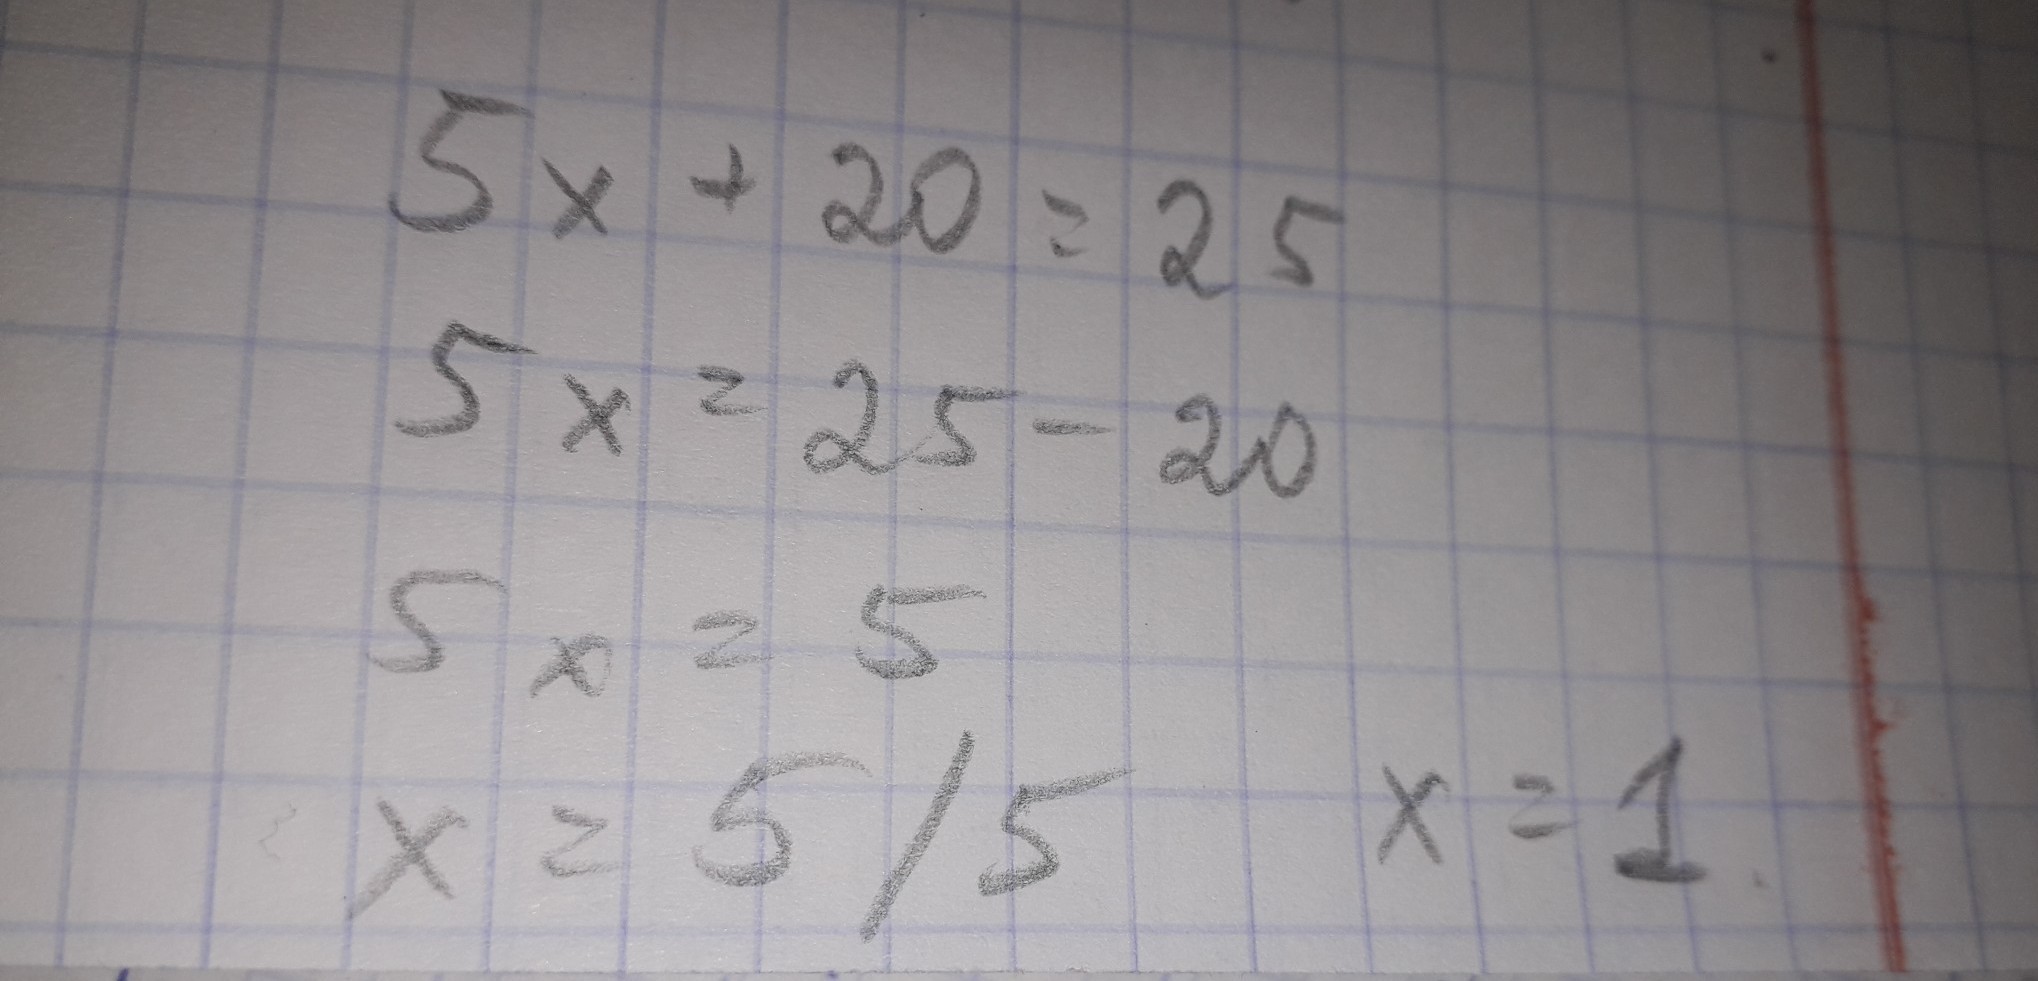 5x + 20 = 25
5x = 25 - 20
5x = 5
x = 5/5 x = 1